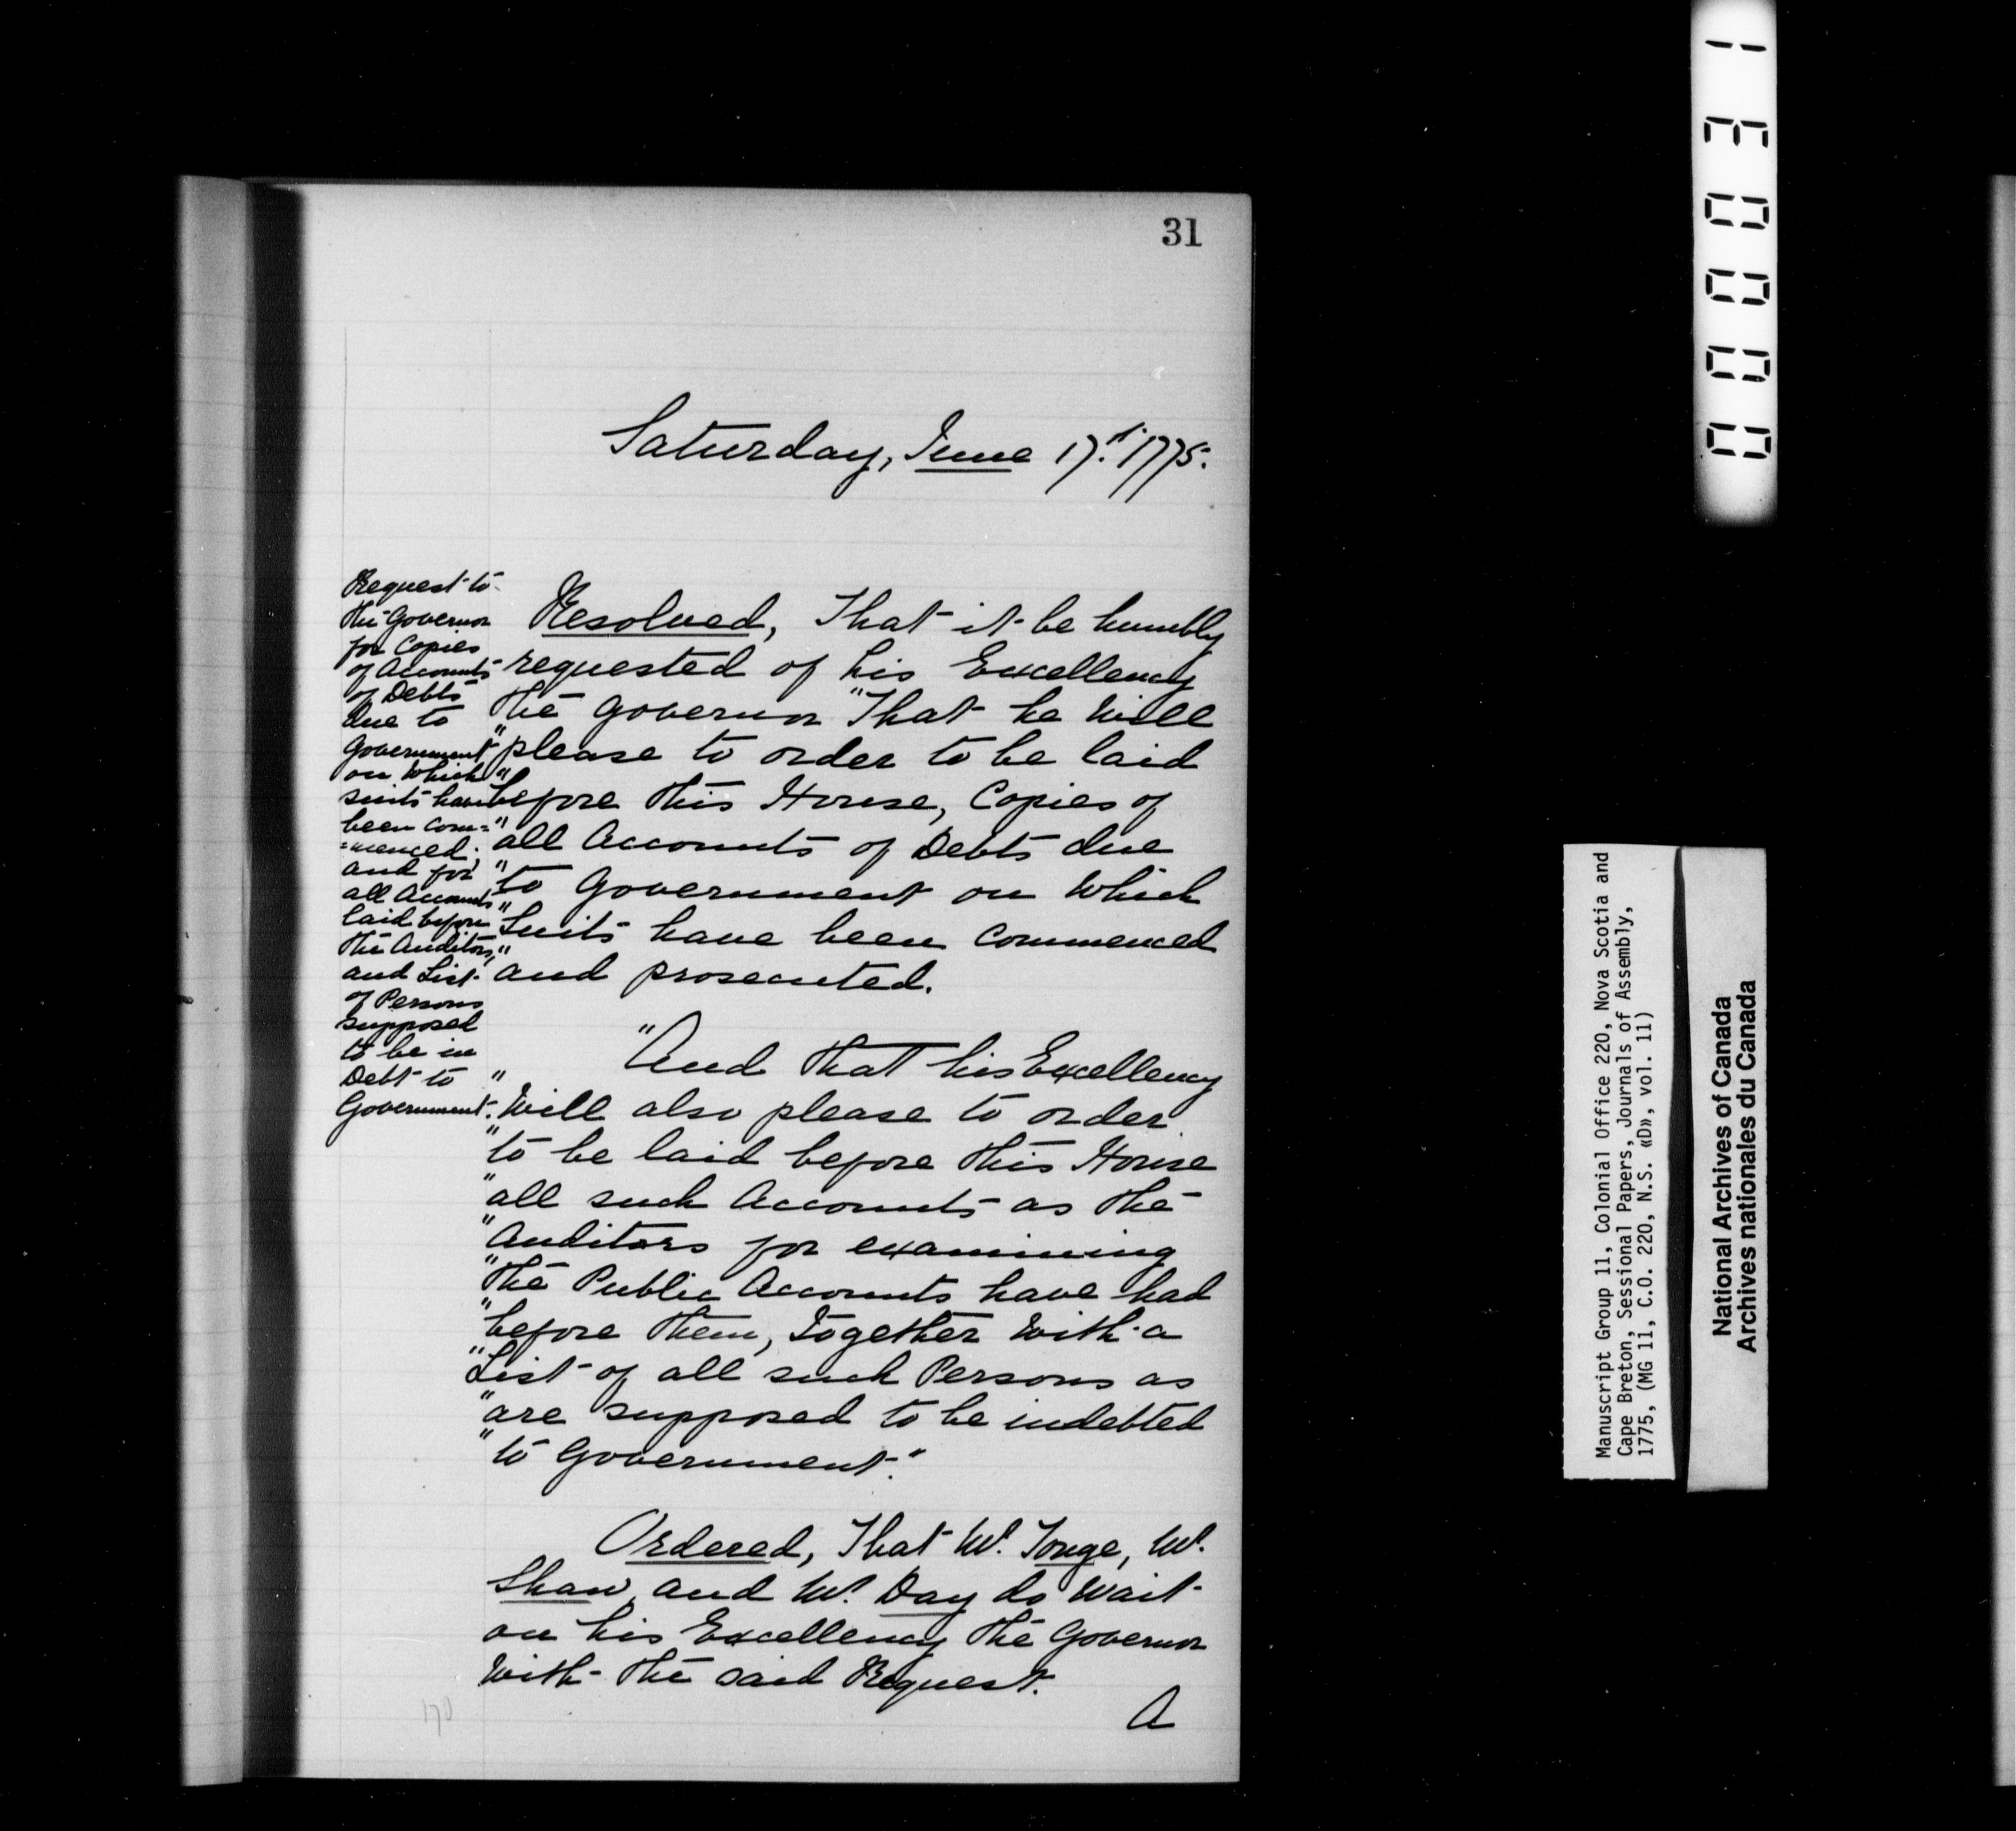 31
Saturday, June 17th. 1775.
Request to
the Governor
for Copies
of Accounts
of Debts
due to
Government
on which
suits have
been com=
=menced;
and for
all Accounts
laid before
the Auditors,
and List
of Persons
supposed
to be in
Debt to
Government.
Resolved, That it be humbly
requested of his Excellency
the Governor "That he will
"please to order to be laid
"before this House, Copies of
"all Accounts of Debts due
"to Government on which
"Suits have been commenced
"and prosecuted.
"And that his Excellency
"will also please to order
"to be laid before this House
"all such Accounts as the
"Auditors for examining
"the Public Accounts have had
"before them, together with a
"List of all such Persons as
"are supposed to be indebted
"to Government."
Ordered, That Mr. Tonge, Mr.
Shaw, and Mr. Day do wait
on his Excellency the Governor
with the said Request.
A
170
000031
Manuscript Group 11, Colonial Office 220, Nova Scotia and
Cape Breton, Sessional Papers, Journals of Assembly,
1775, (MG 11, C.O. 220, N.S. «D», vol. 11)
National Archives of Canada
Archives nationales du Canada